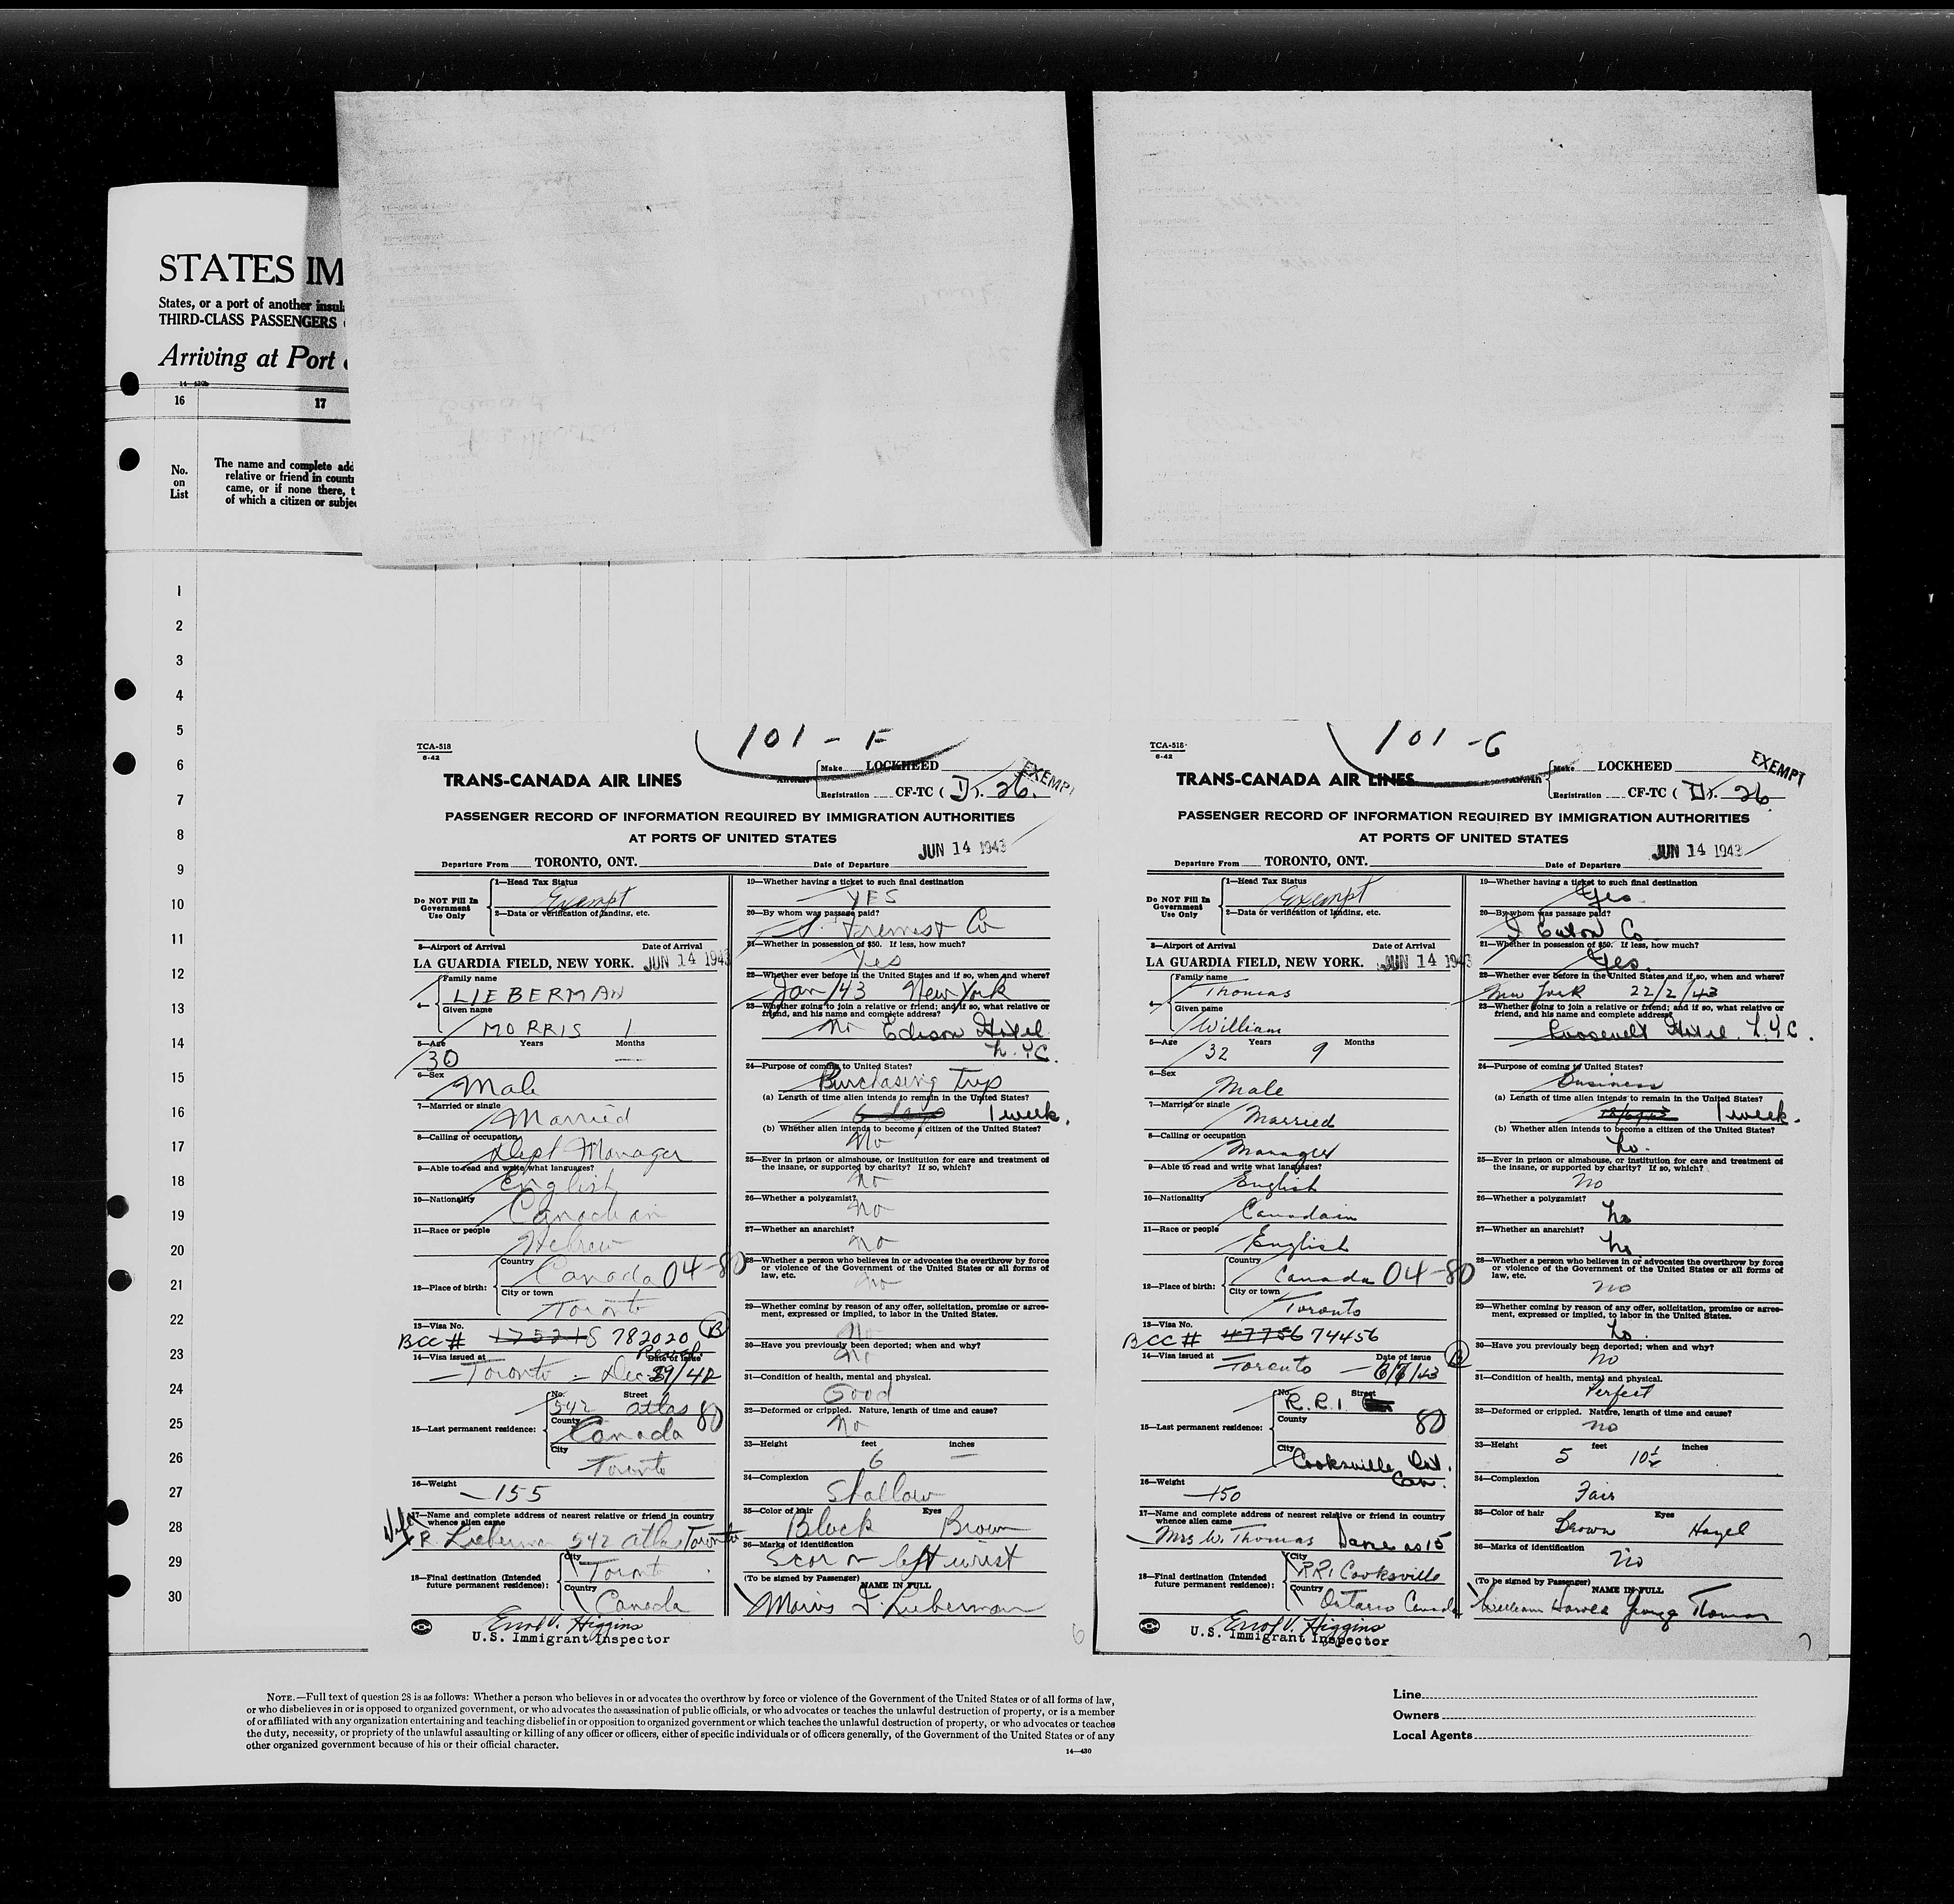 STATES IM
States, or a port of another insul
THIRD-CLASS PASSENGERS
Arriving at Port
16 17
No. on List
The name and complete add
relative or friend in countr
came, or if none there, t
of which a citizen or subje
1
2
3
4
5
6
7
8
9
10
11
12
13
14
15
16
17
18
19
20
21
22
23
24
25
26
27
28
29
30
101 - F
TCA-518
6-42
TRANS-CANADA AIR LINES
Aircraft
Make LOCKHEED
Registration CF-TC (D). 26.
EXEMPT
PASSENGER RECORD OF INFORMATION REQUIRED BY IMMIGRATION AUTHORITIES
AT PORTS OF UNITED STATES
Departure From TORONTO, ONT. Date of Departure JUN 14 1943
Do NOT Fill In Government Use Only
1—Head Tax Status
Exempt
2—Data or verification of landing, etc.
3—Airport of Arrival Date of Arrival
LA GUARDIA FIELD, NEW YORK. JUN 14 1943
4—
Family name
LIEBERMAN
Given name
MORRIS I
5—Age Years Months
30 —
6—Sex
Male
7—Married or single
Married
8—Calling or occupation
Dept Manager
9—Able to read and write what languages?
English
10—Nationality
Canadian
11—Race or people
Hebrew
12—Place of birth:
Country
Canada 04-80
City or town
Toronto
13—Visa No.
BCC # 782020 B
14—Visa issued at Date of issue
Toronto - Dec 29/42
15—Last permanent residence:
No. Street
542 atlas 80
County
Canada
City
Toronto
16—Weight
155
17—Name and complete address of nearest relative or friend in country
whence alien came
Wife
R. Lieberman 542 atlas Toronto
18—Final destination (Intended
future permanent residence):
City
Toronto
Country
Canada
Errol V. Higgins
U.S. Immigrant Inspector
19—Whether having a ticket to such final destination
YES
20—By whom was passage paid?
Co
21—Whether in possession of $50. If less, how much?
Yes
22—Whether ever before in the United States and if so, when and where?
Jan/43 New York
23—Whether going to join a relative or friend; and if so, what relative or
friend, and his name and complete address?
No Edison Hotel
N.Y.C.
24—Purpose of coming to United States?
Purchasing trip
(a) Length of time alien intends to remain in the United States?
6 days 1 week.
(b) Whether alien intends to become a citizen of the United States?
No
25—Ever in prison or almshouse, or institution for care and treatment of
the insane, or supported by charity? If so, which?
No
26—Whether a polygamist?
No
27—Whether an anarchist?
No
28—Whether a person who believes in or advocates the overthrow by force
or violence of the Government of the United States or all forms of
law, etc.
No
29—Whether coming by reason of any offer, solicitation, promise or agree-
ment, expressed or implied, to labor in the United States.
No
30—Have you previously been deported; when and why?
No
31—Condition of health, mental and physical.
Good
32—Deformed or crippled. Nature, length of time and cause?
No
33—Height feet inches
6 —
34—Complexion
Shallow
35—Color of hair Eyes
Black Brown
36—Marks of identification
Scar on left wrist
(To be signed by Passenger) NAME IN FULL
Morris I. Lieberman
6
101 - G
TCA-518
6-42
TRANS-CANADA AIR LINES
Aircraft
Make LOCKHEED
Registration CF-TC (D). 26.
EXEMPT
PASSENGER RECORD OF INFORMATION REQUIRED BY IMMIGRATION AUTHORITIES
AT PORTS OF UNITED STATES
Departure From TORONTO, ONT. Date of Departure JUN 14 1943
Do NOT Fill In Government Use Only
1—Head Tax Status
Exempt
2—Data or verification of landing, etc.
3—Airport of Arrival Date of Arrival
LA GUARDIA FIELD, NEW YORK. JUN 14 1943
4—
Family name
Thomas
Given name
William
5—Age Years Months
32 9
6—Sex
Male
7—Married or single
Married
8—Calling or occupation
Manager
9—Able to read and write what languages?
English
10—Nationality
Canadain
11—Race or people
English
12—Place of birth:
Country
Canada 04-80
City or town
Toronto
13—Visa No.
BCC # 47756 74456
14—Visa issued at Date of issue B
Toronto - 6/7/43
15—Last permanent residence:
No. Street
R.R.1
County
80
City
Cooksville Ont.
Can.
16—Weight
150
17—Name and complete address of nearest relative or friend in country
whence alien came
Mrs W. Thomas Same as 15
18—Final destination (Intended
future permanent residence):
City
RR1 Cooksville
Country
Ontario Canada
Errol V. Higgins
U.S. Immigrant Inspector
19—Whether having a ticket to such final destination
Yes
20—By whom was passage paid?
Eaton Co
21—Whether in possession of $50. If less, how much?
Yes.
22—Whether ever before in the United States and if so, when and where?
New York 22/2/43
23—Whether going to join a relative or friend; and if so, what relative or
friend, and his name and complete address?
Roosevelt Hotel. N.Y.C.
24—Purpose of coming to United States?
Business
(a) Length of time alien intends to remain in the United States?
1 week.
(b) Whether alien intends to become a citizen of the United States?
No.
25—Ever in prison or almshouse, or institution for care and treatment of
the insane, or supported by charity? If so, which?
No
26—Whether a polygamist?
No
27—Whether an anarchist?
No.
28—Whether a person who believes in or advocates the overthrow by force
or violence of the Government of the United States or all forms of
law, etc.
No
29—Whether coming by reason of any offer, solicitation, promise or agree-
ment, expressed or implied, to labor in the United States.
No.
30—Have you previously been deported; when and why?
No
31—Condition of health, mental and physical.
Perfect
32—Deformed or crippled. Nature, length of time and cause?
no
33—Height feet inches
5 10½
34—Complexion
Fair
35—Color of hair Eyes
Brown Hazel
36—Marks of identification
No
(To be signed by Passenger) NAME IN FULL
William Harold George Thomas
7
NOTE.—Full text of question 28 is as follows: Whether a person who believes in or advocates the overthrow by force or violence of the Government of the United States or of all forms of law,
or who disbelieves in or is opposed to organized government, or who advocates the assassination of public officials, or who advocates or teaches the unlawful destruction of property, or is a member
of or affiliated with any organization entertaining and teaching disbelief in or opposition to organized government or which teaches the unlawful destruction of property, or who advocates or teaches
the duty, necessity, or propriety of the unlawful assaulting or killing of any officer or officers, either of specific individuals or of officers generally, of the Government of the United States or of any
other organized government because of his or their official character.
14—430
Line
Owners
Local Agents